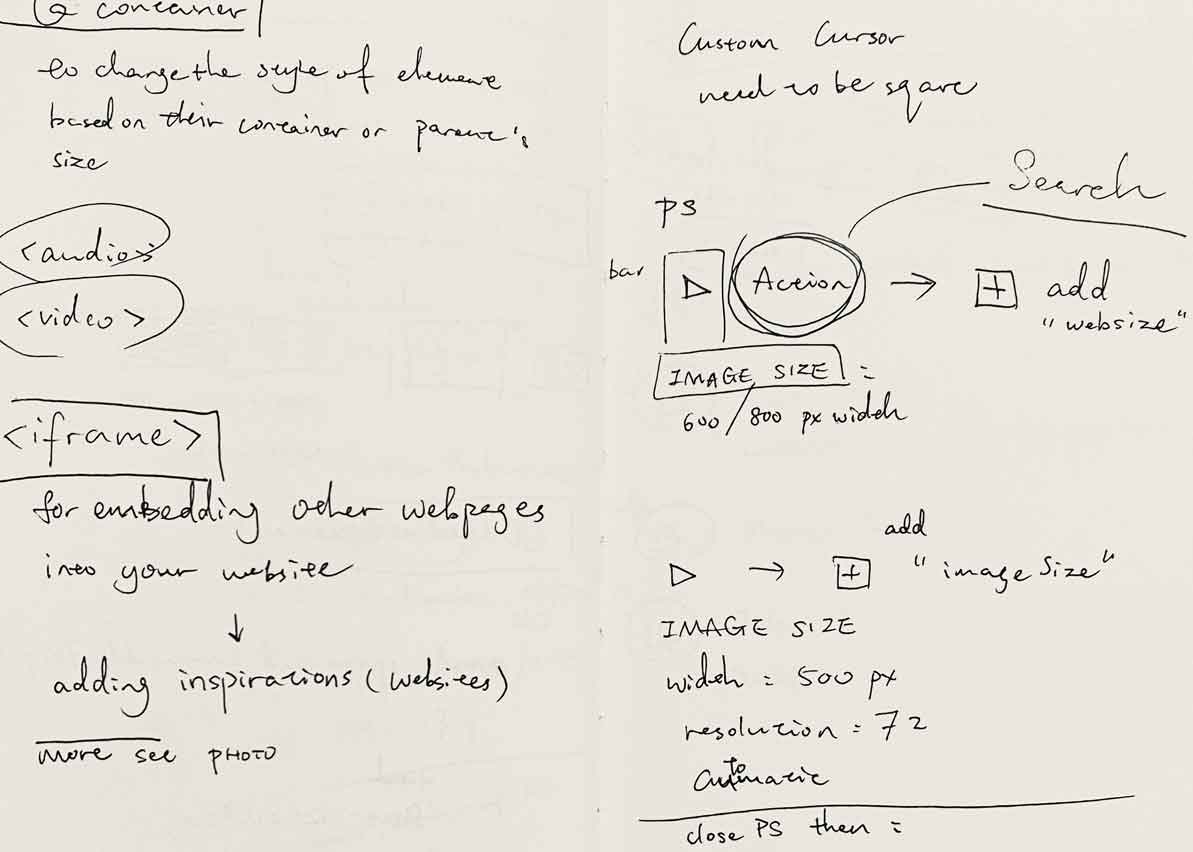 @ container
to change the style of element
based on their container or parent's
size
<audio>
<video>
<iframe>
for embedding other webpages
into your website
↓
adding inspirations (websites)
more see PHOTO
Custom Cursor
need to be sqare
Search
PS
bar ▷ Action → + add
"websize"
IMAGE SIZE =
600/800 px width
add
▷ → + "image size"
IMAGE SIZE
width = 500 px
resolution = 72
automatic
close PS then =